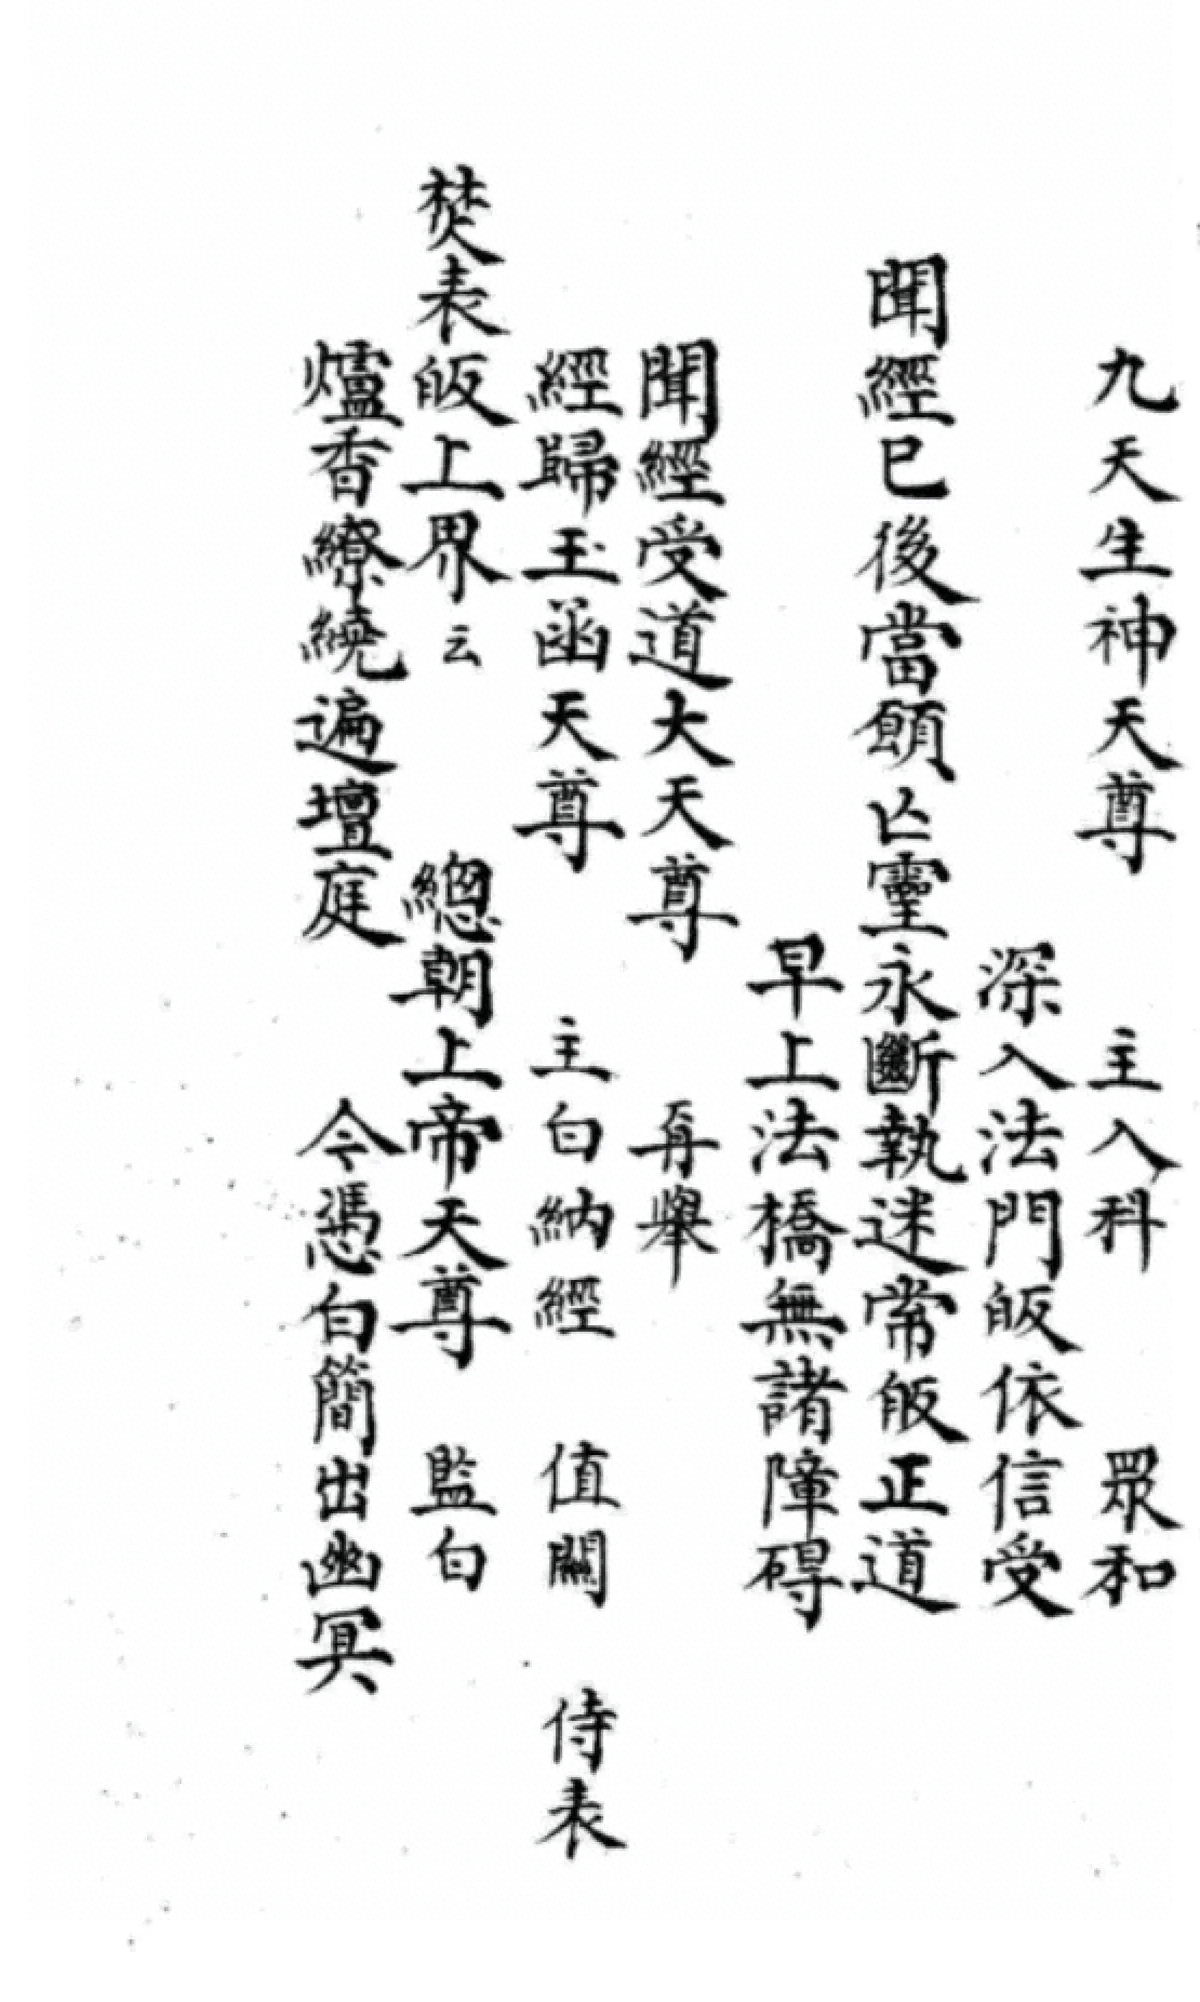 九天生神天尊 主入科 眾和
深入法門皈依信受
聞經已後當願亾靈永斷執迷常皈正道
早上法橋無諸障碍
聞經受道大天尊 再舉
經歸玉函天尊 主白納經 值關 侍表
焚表皈上界云 總朝上帝天尊 監白
爐香繚繞遍壇庭 今憑白簡出幽冥